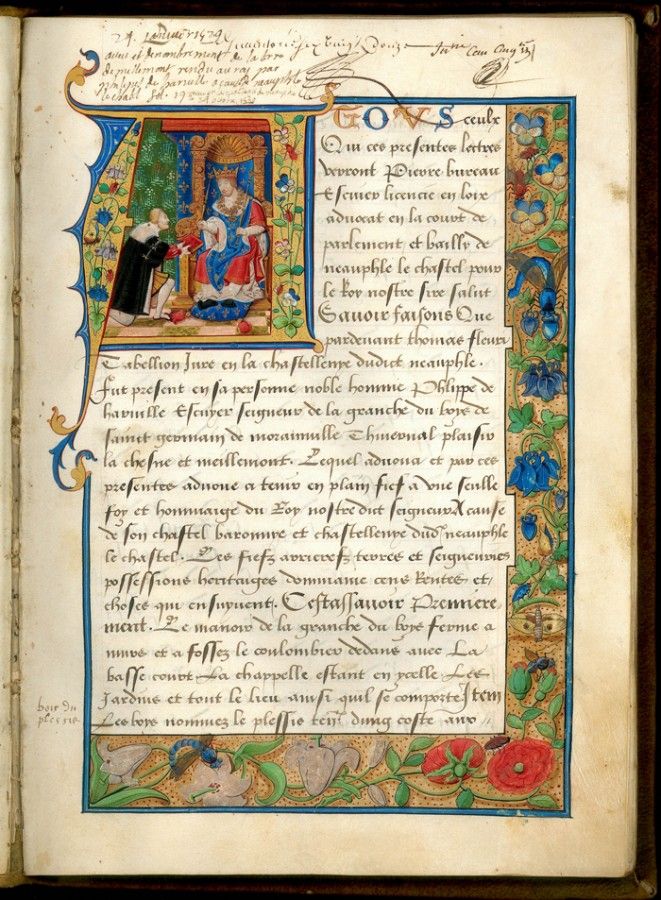 24 janvier 1529
aveu et denombrement de la tre
de meillemont rendu au roy par
philipes de harville a cause de neauphle
le chastel
A GOVS ceulx
Qui ces presentes lectres
verront Pierre bureau
Escuier licencie en loix
advocat en la court de
parlement et bailly de
neauphle le chastel pour
le Roy nostre sire salut
Savoir faisons Que
pardevant thomas fleuri
Tabellion Jure en la chastellenye dudict neauphle.
Fut present en sa personne noble homme Phlippe de
harville Escuyer seigneur de la granche du boys de
sainct germain de morainville Thiverval plaisir
la chesne et meillemont. Lequel advoua et par ces
presentes advoue a tenir en plain fief a une seulle
foy et hommaige du Roy nostre dit seigneur A cause
de son chastel baronnye et chastellenye dud neauphle
le chastel. Les fiefz arrierefz terres et seigneuries
possessions heritaiges dommaine cens Rentes et
choses qui ensuyvent. Cestassavoir Premiere
ment. Le manoir de la granche du boys ferme a
murs et a fossez le coulombier dedans avec La
basse court La chappelle estant en ycelle Les
Jardins et tout le lieu ainsi quil se comporte Item
Les boys nommez le plessis ten dung coste aux
bois du
plessis